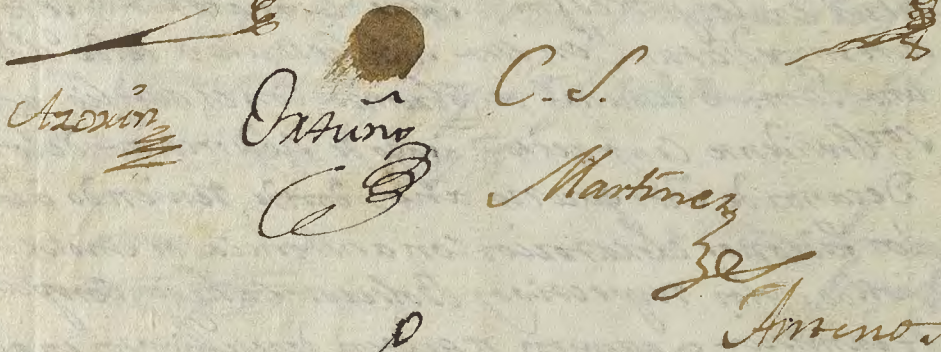 Azorin Ortuño C. S.
Martinez